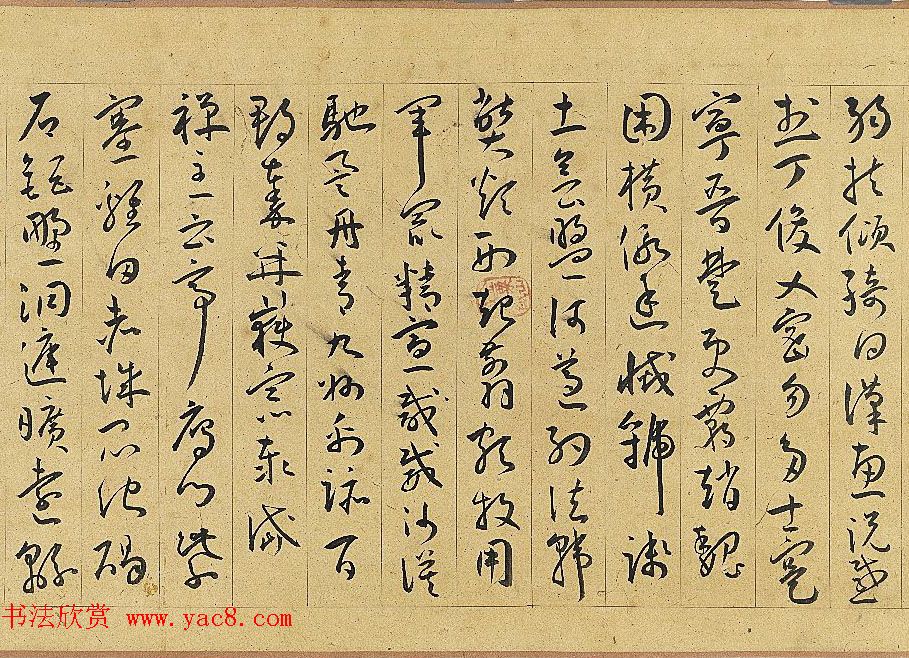 弱扶傾綺回漢惠說感
武丁俊乂密勿多士寔
寧晉楚更霸趙魏
困橫假途滅虢踐
土會盟何遵約法韓
弊煩刑起翦頗牧用
軍最精宣威威沙漠
馳譽丹青九州禹跡百
郡秦并嶽宗泰岱
禪主云亭雁門紫
塞雞田赤城昆池碣
石鉅野洞庭曠遠緜
书法欣赏 www.yac8.com